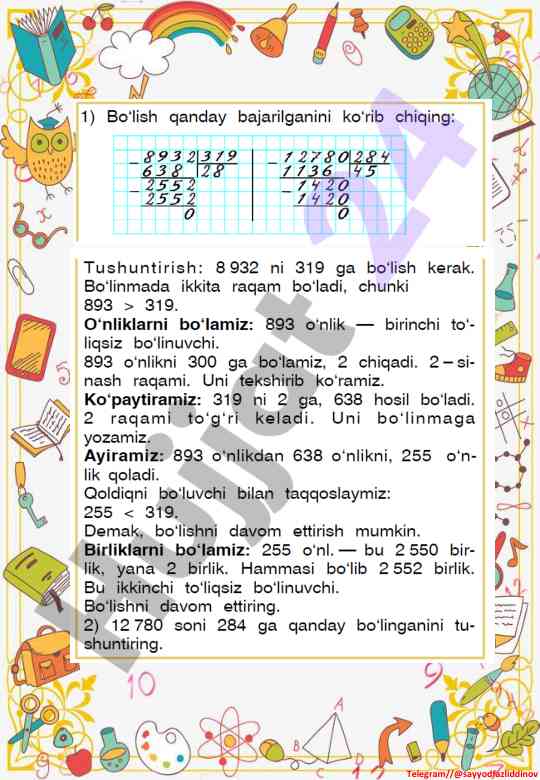 1) Bo‘lish qanday bajarilganini ko‘rib chiqing:
− 8932 | 319
638 | 28
− 2552
2552
0
− 12780 | 284
1136 | 45
− 1420
1420
0
Tushuntirish: 8 932 ni 319 ga bo‘lish kerak.
Bo‘linmada ikkita raqam bo‘ladi, chunki
893 > 319.
O‘nliklarni bo‘lamiz: 893 o‘nlik — birinchi to‘-
liqsiz bo‘linuvchi.
893 o‘nlikni 300 ga bo‘lamiz, 2 chiqadi. 2 – si-
nash raqami. Uni tekshirib ko‘ramiz.
Ko‘paytiramiz: 319 ni 2 ga, 638 hosil bo‘ladi.
2 raqami to‘g‘ri keladi. Uni bo‘linmaga
yozamiz.
Ayiramiz: 893 o‘nlikdan 638 o‘nlikni, 255 o‘n-
lik qoladi.
Qoldiqni bo‘luvchi bilan taqqoslaymiz:
255 < 319.
Demak, bo‘lishni davom ettirish mumkin.
Birliklarni bo‘lamiz: 255 o‘nl. — bu 2 550 bir-
lik, yana 2 birlik. Hammasi bo‘lib 2 552 birlik.
Bu ikkinchi to‘liqsiz bo‘linuvchi.
Bo‘lishni davom ettiring.
2) 12 780 soni 284 ga qanday bo‘linganini tu-
shuntiring.
Hujjat 24
10
A
B
D
Telegram//@sayyodfazliddinov